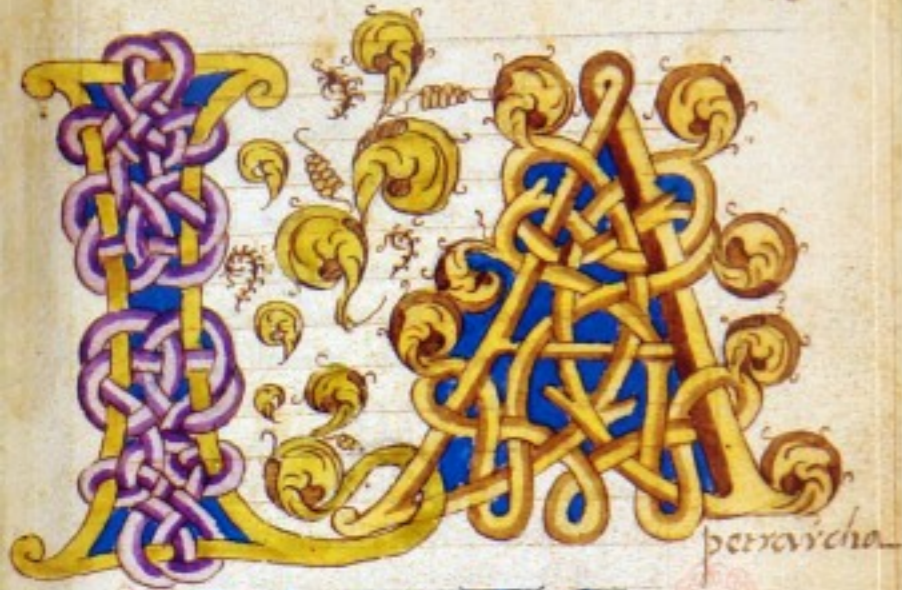 LA
petrarcha